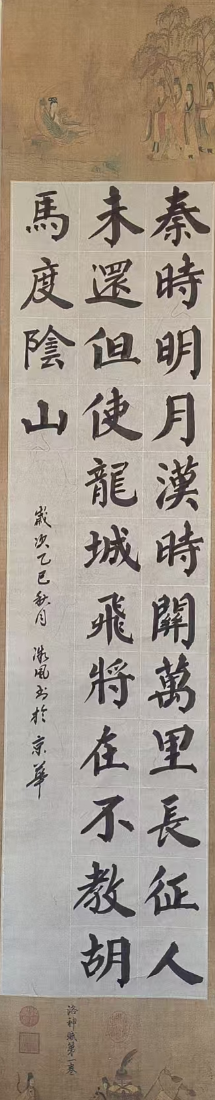 秦時明月漢時關萬里長征人
未還但使龍城飛將在不教胡
馬度陰山
歲次乙巳秋月 漵風书於京華
洛神賦第一卷